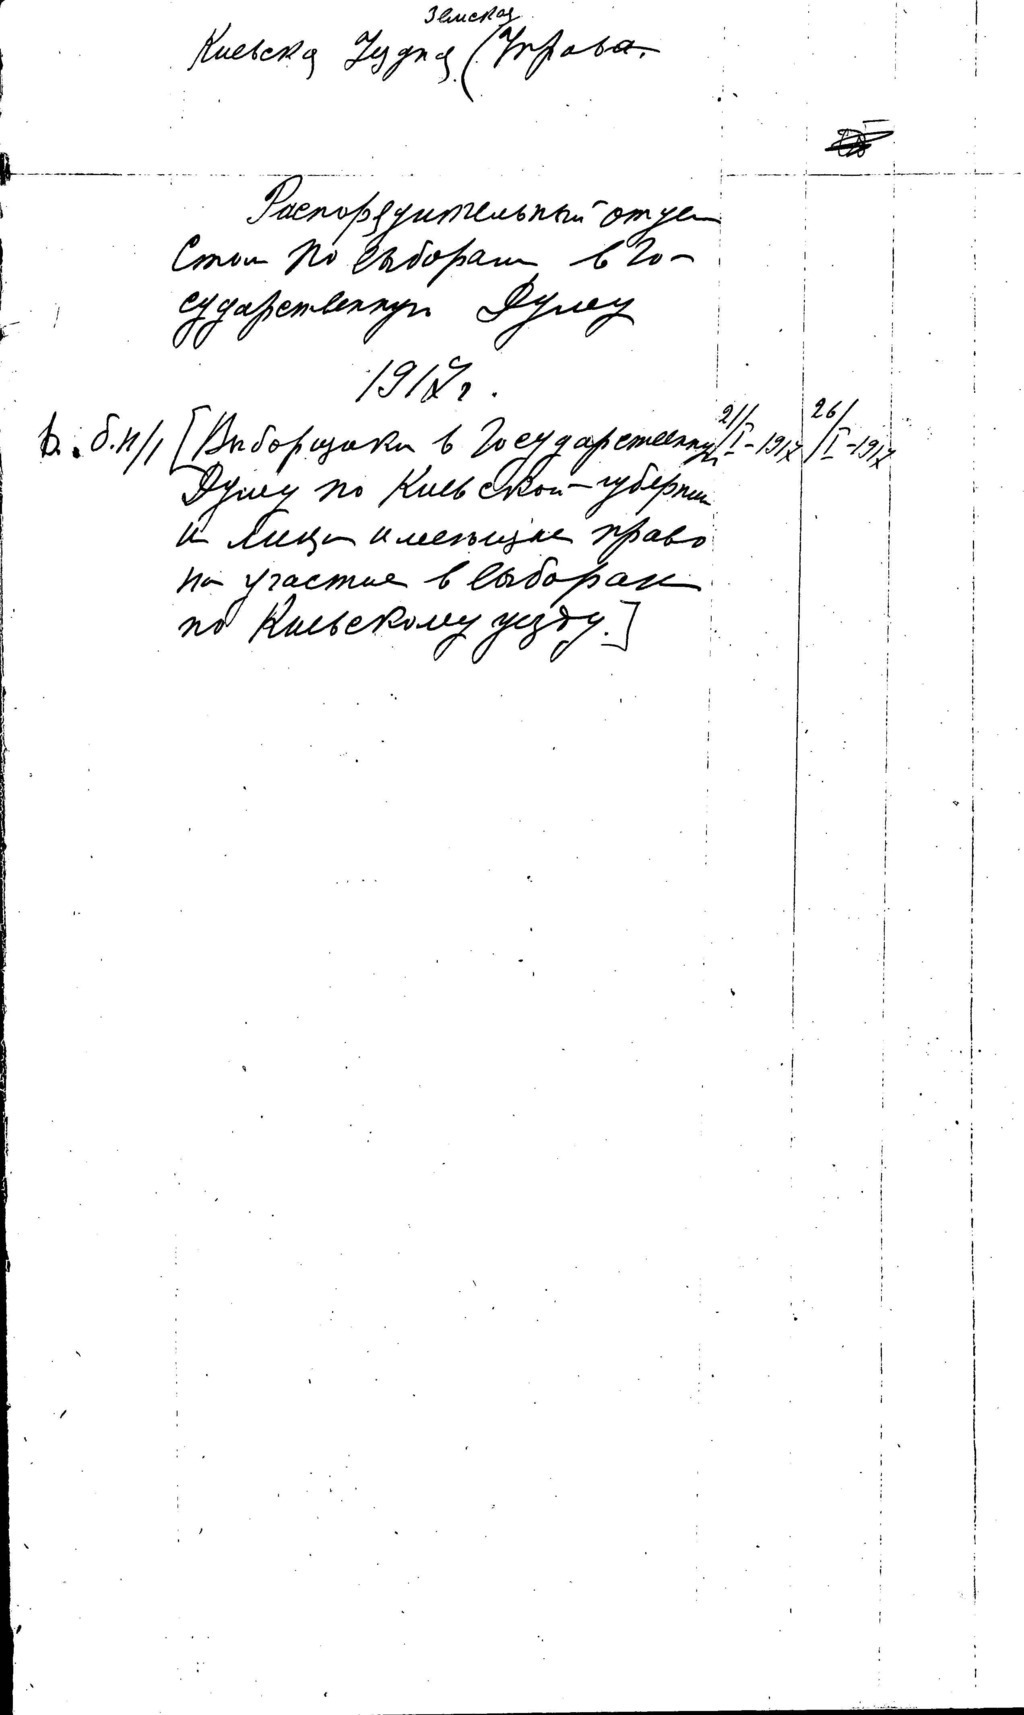 Земская
Киевска Уздна Управа.
Распорядительный отдел
Стол по выборам в Го-
сударственную Думу
1917 г.
б.н/1 [Выборщики в Государственную 21/I-1917 26/I-1917
Думу по Киевской губернии
и лица имеющие право
на участие в выборах
по Киевскому уезду.]